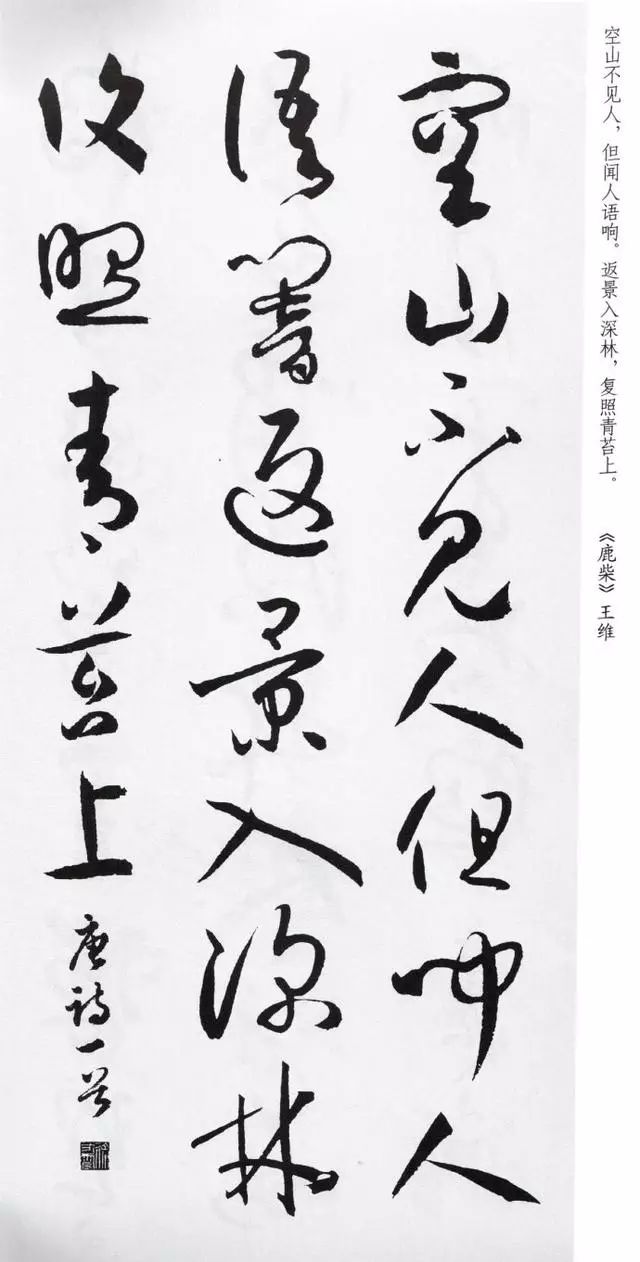 空山不见人，但闻人语响。返景入深林，复照青苔上。 《鹿柴》王维
空山不見人但聞人
語響返景入深林
復照青苔上 唐詩一首